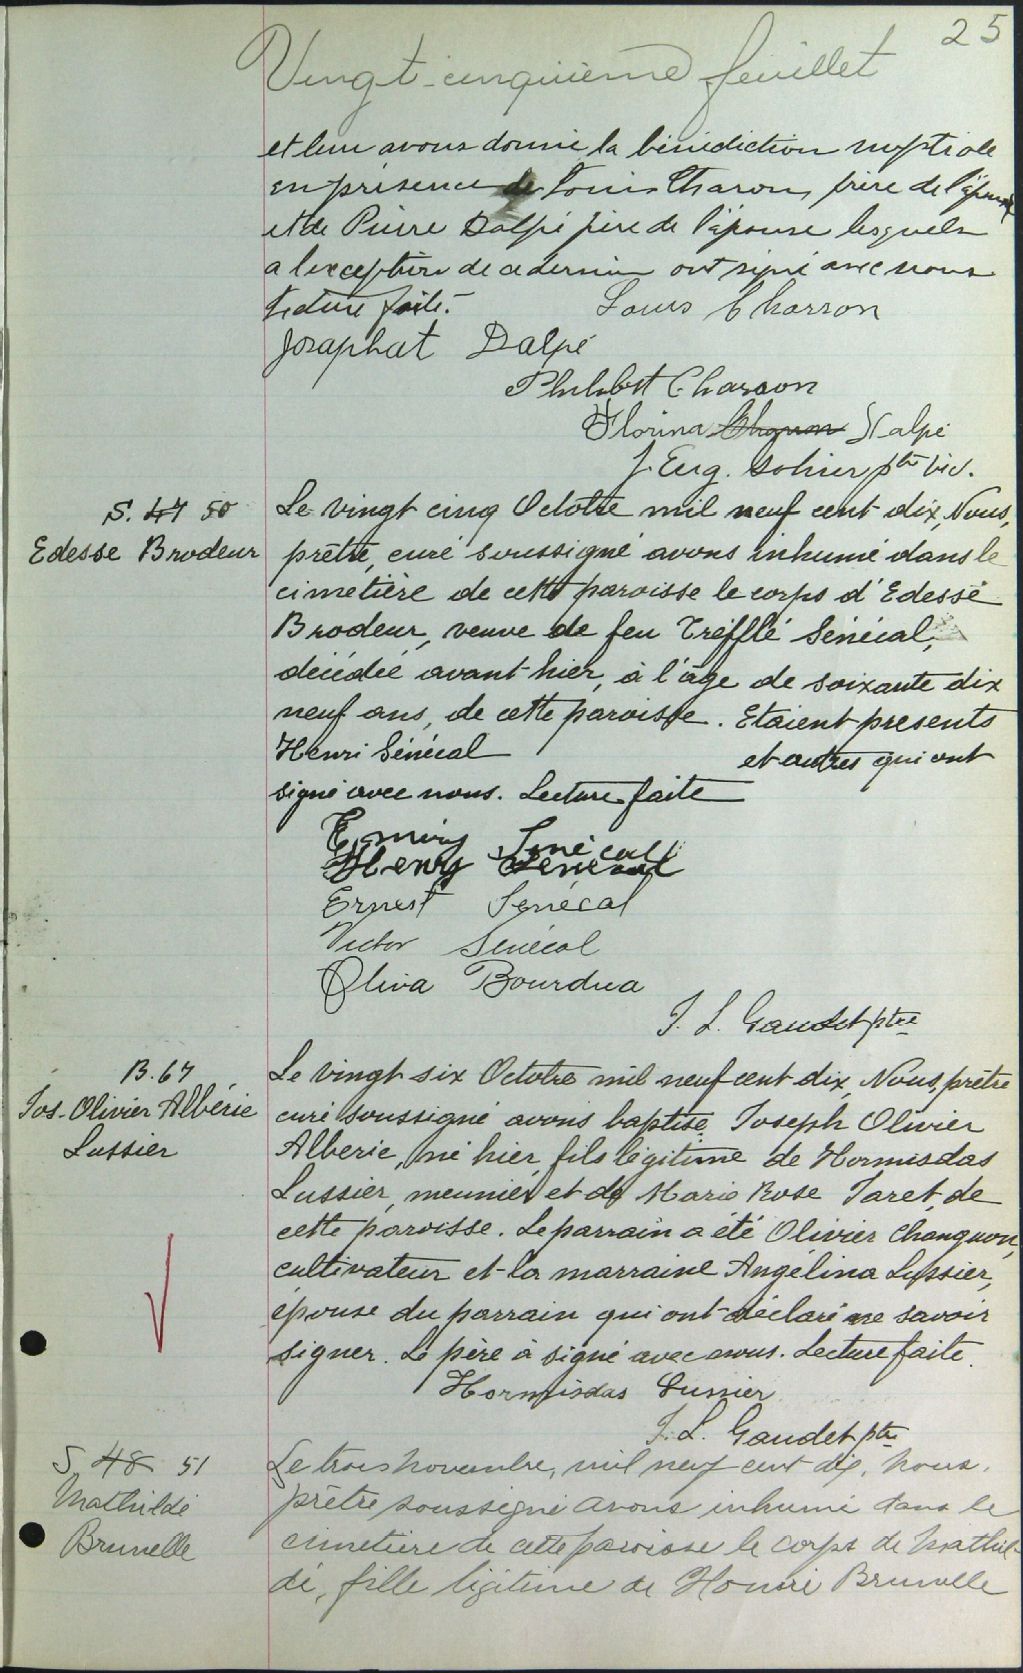 25
Vingt-cinquième feuillet
et leur avons donné la bénédiction nuptiale
en présence de Louis Charon, frère de l'époux
et de Pierre Dalpé père de l'épouse lesquels
a l'exception de ce dernier ont signé avec nous
Lecture faite.
Louis Charron
Josaphat Dalpé
Philibert Charron
Florina Dalpé
J. Eug. Sohier ptre vic.
S. 47 50
Edesse Brodeur
Le vingt cinq Octobre mil neuf cent dix, Nous,
prêtre, curé soussigné avons inhumé dans le
cimetière de cette paroisse le corps d'Edesse
Brodeur, veuve de feu Tréfflé Sénécal,
décédée avant-hier, à l'âge de soixante dix
neuf ans, de cette paroisse. Etaient presents
Henri Sénécal et autres qui ont
signé avec nous. Lecture faite
Sénécal
Henry Senecal
Ernest Senécal
Victor Sénécal
Oliva Bourdua
J. L. Gaudet ptre
B. 67
Jos-Olivier Albérie
Lussier
Le vingt-six Octobre mil neuf cent dix, Nous, prêtre
curé soussigné avons baptisé Joseph Olivier
Alberie, né hier, fils légitime de Hormisdas
Lussier, meunier et de Marie Rose Jaret, de
cette paroisse. Le parrain a été Olivier Changnon,
cultivateur et la marraine Angélina Lussier,
épouse du parrain qui ont déclaré ne savoir
signer. Le père à signé avec nous. Lecture faite.
Hormisdas Lussier
J. L. Gaudet ptre
S 48 51
Mathilde
Brunelle
Le trois novembre, mil neuf cent dix, nous,
prêtre soussigné avons inhumé dans le
cimetière de cette paroisse le corps de Mathil-
de, fille légitime de Brunelle